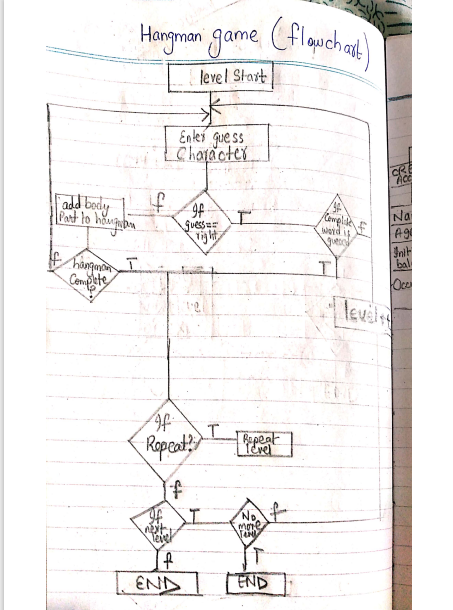 Hangman game (flowchart)
level Start
Enter guess
Character
add body
Part to hangman
f
If
guess==
right
T
If
Complete
word is
guess
f
T
f
hangman
Complete
?
T
level++
If
Repeat?
T
Repeat
level
f
If
next
level
T
No
more
level
f
f
T
END
END
CRE
ACC
Na
Ag
Init
bal
Occ